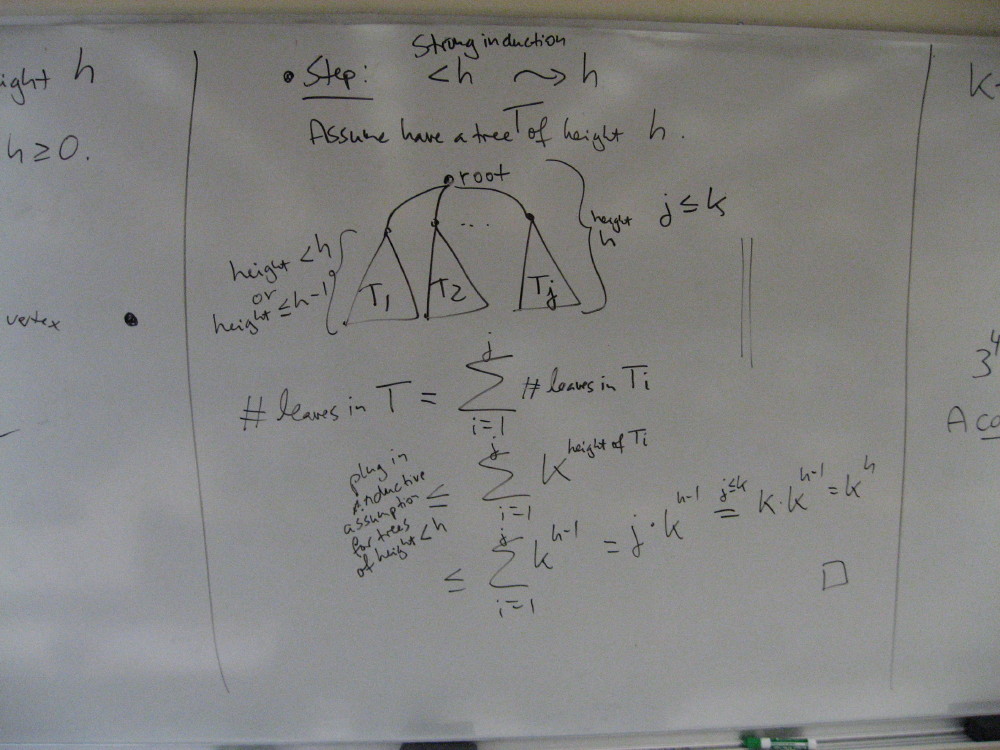 ight h
h ≥ 0.
vertex
Strong induction
• Step: <h ⤳ h
Assume have a tree T of height h.
root
height <h
or
height ≤ h-1
T1 T2 ... Tj
height
h
j ≤ k
# leaves in T = ∑_{i=1}^{j} # leaves in Ti
plug in
inductive
assumption
for trees
of height <h
≤ ∑_{i=1}^{j} k^{height of Ti}
≤ ∑_{i=1}^{j} k^{h-1} = j · k^{h-1} ≤^{j≤k} k · k^{h-1} = k^h
□
k-
3^4
A co